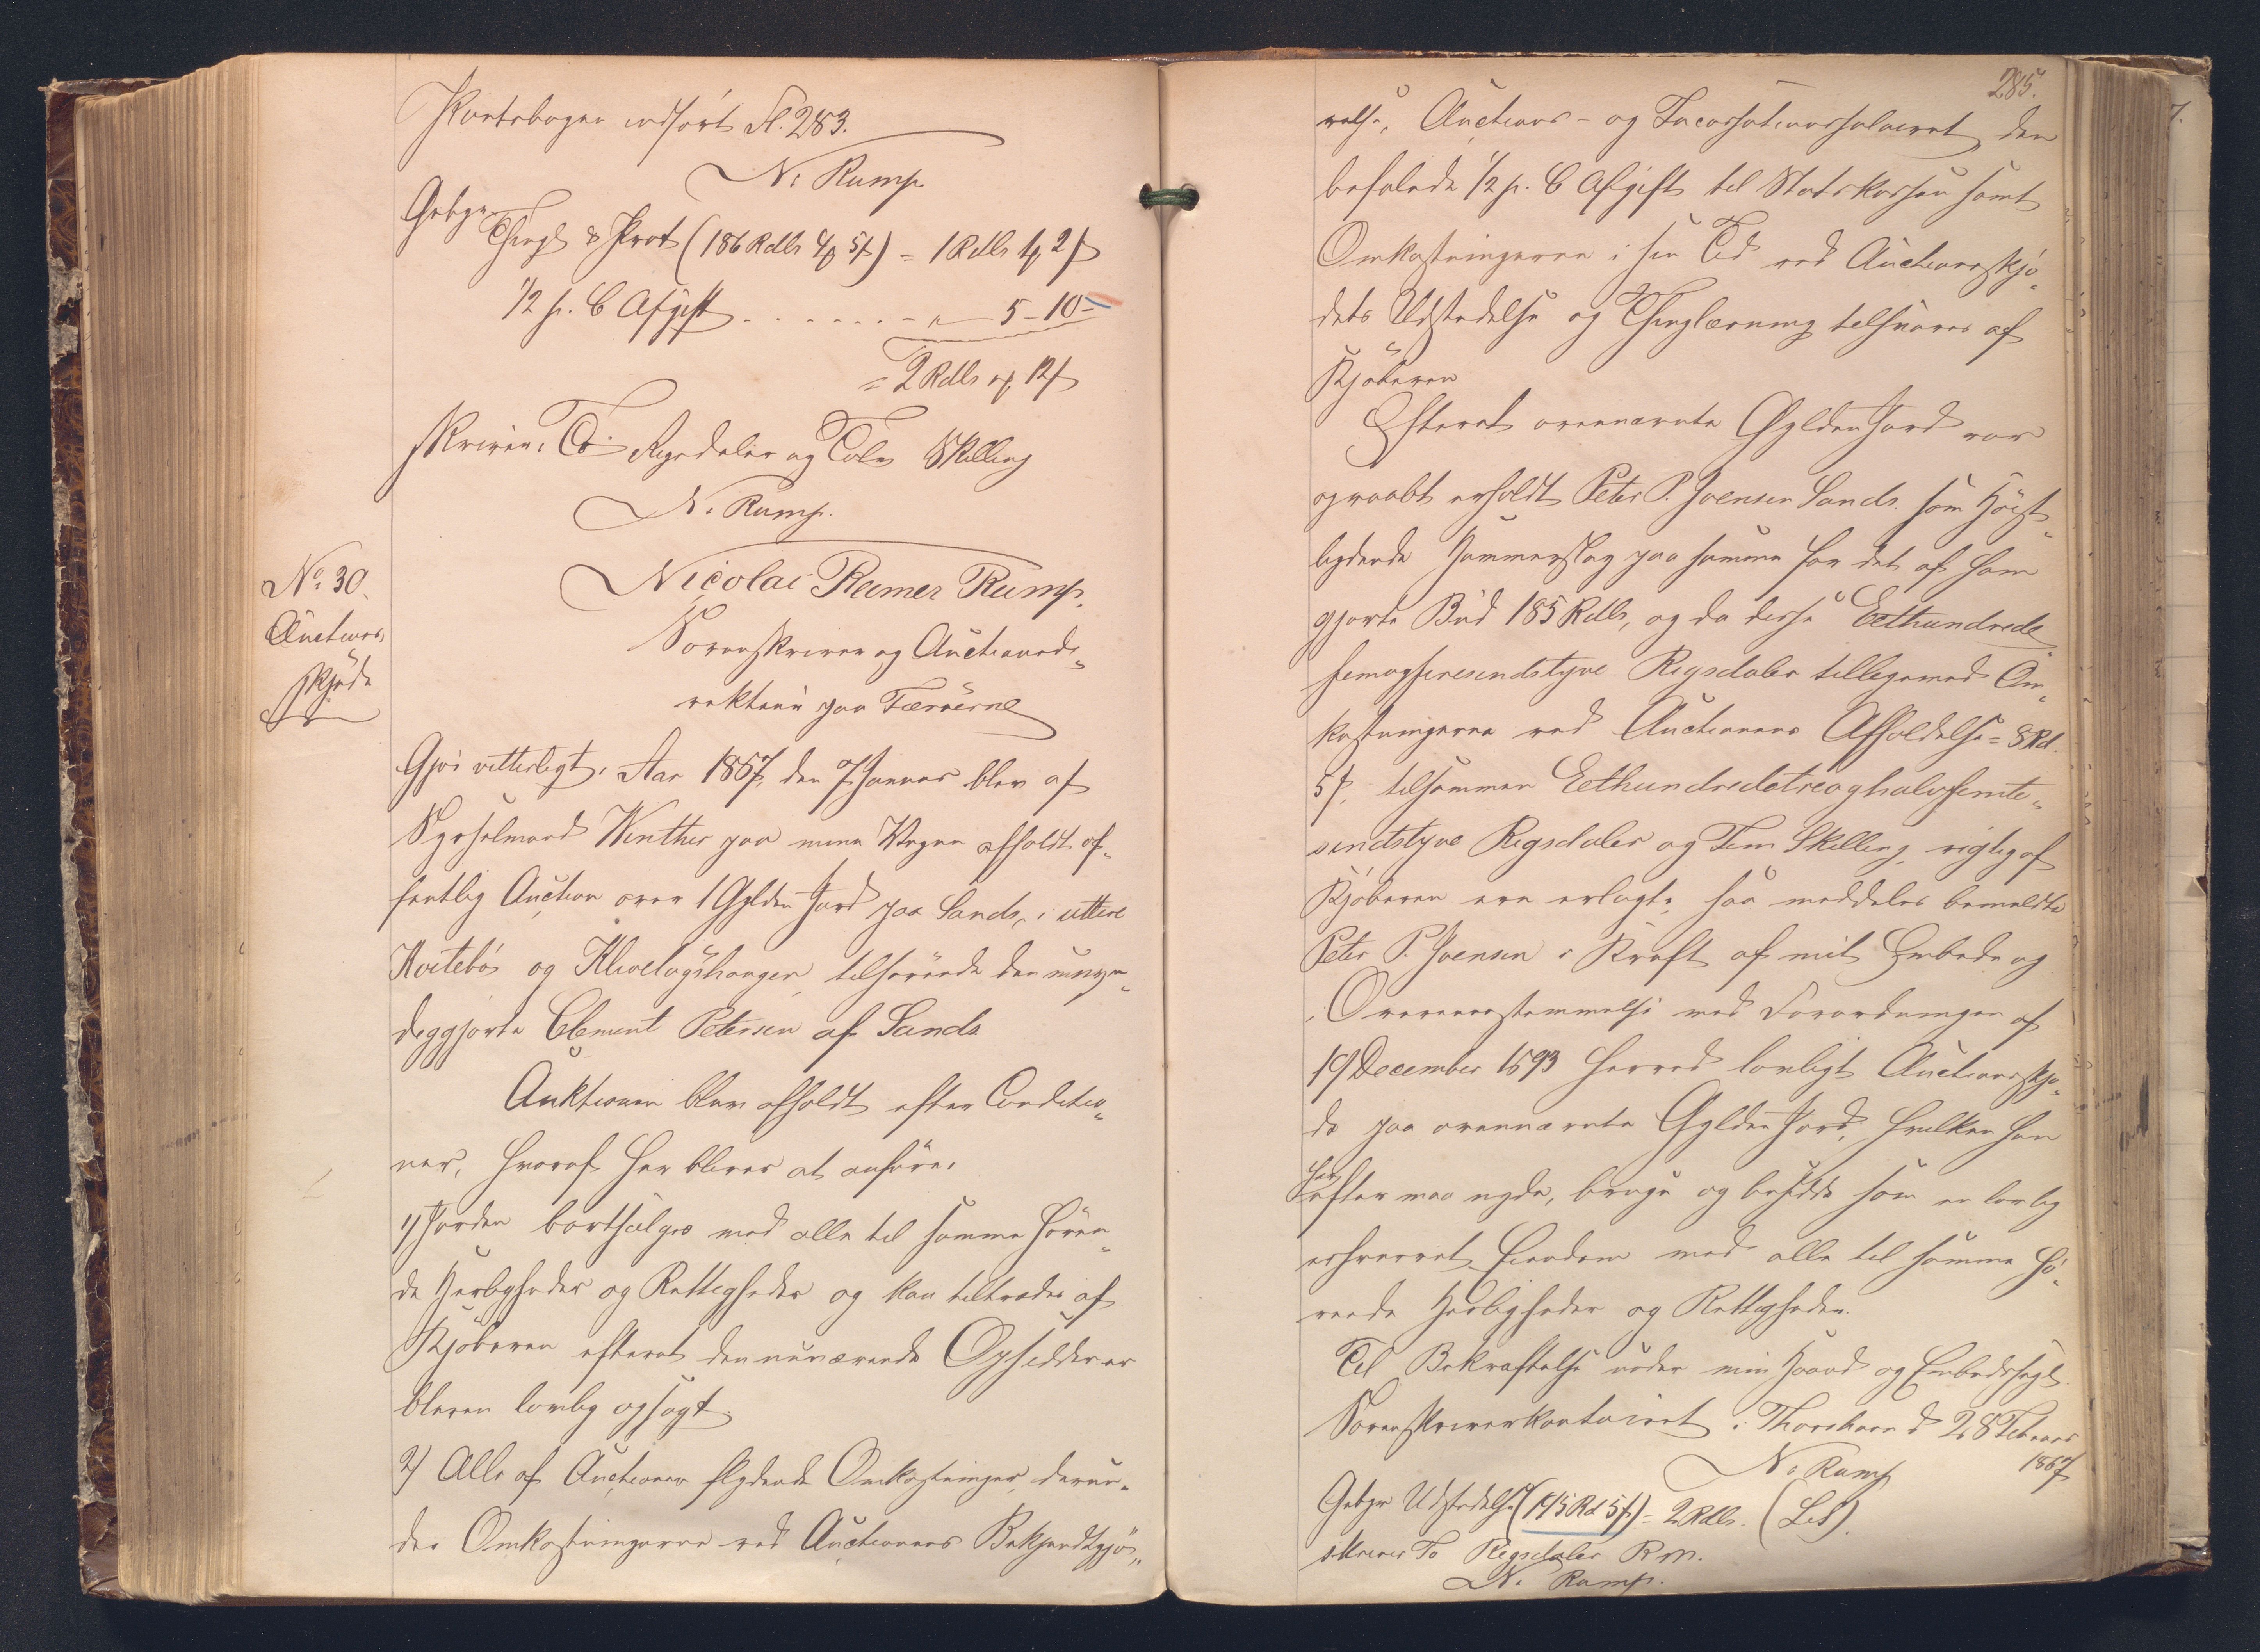 Pantebogen indført Fl. 283.
N. Rump
Gebyr
Thingl & Prot (186 Rdlr 4 ꝟ 5 ß) = 1 Rdlr 4 ꝟ 2 ß
1/2 p. C Afgift . . . . . . . - „ — 5 - 10 -
= 2 Rdlr „ ꝟ 12 ß
skriver: To Rigsdaler og Tolv Skilling
N. Rump.
No 30.
Auctions
skjøde
Nicolai Reimer Rump,
Sorenskriver og Auctionsdi-
rekteur paa Færøerne
Gjør vitterligt: Aar 1867 den 7 Januar blev af
Sysselmand Winther paa mine Vegne afholdt of-
fentlig Auction over 1 Gylden Jord paa Sands, i uttere
Kvitebøs og Kliveløgshaugen, tilhørende den umyn-
diggjorte Clement Petersen af Sands
Auktionen blev afholdt efter Conditio-
ner, hvoraf her bliver at anføre:
1) Jorden bortsælges med alle til samme høren-
de Herligheder og Rettigheder og kan tiltrædes af
Kjøberen efterat den nuværende Opsidder er
bleven lovlig opsagt
2) Alle af Auctionen flydende Omkostninger, derun-
der Omkostningerne ved Auctionens Bekjendtgjø-
285.
relse, Auctions- og Incassationssalairet, den
befalede 1/2 p. C Afgift til Statskassen samt
Omkostningerne i sin Tid ved Auctionsskjø-
dets Udstedelse og Thinglæsning tilsvares af
Kjøberen
Efterat ovennævnte Gylden Jord var
opraabt erholdt Peter P. Joensen Sands. som Høist-
bydende Hammerslag paa samme for det af ham
gjorte Bud 185 Rdlr, og da disse Eethundrede
femogfiresindstyve Rigsdaler tilligemed Om-
kostningerne ved Auctionens Afholdelse = 8 Rd.
5 ß, tilsammen Eethundredetreoghalvfemte-
sindstyve Rigsdaler og Fem Skilling, rigtig af
Kjøberen ere erlagte, saa meddeles bemeldte
Peter P. Joensen i Kraft af mit Embede og
i Overeensstemmelse med Forordningen af
19 December 1693 herved lovligt Auctionsskjø-
de paa ovennævnte Gylden Jord, hvilken han
her
efter maa nyde, bruge og besidde som en lovlig
erhvervet Eiendom med alle til samme hø-
rende Herligheder og Rettigheder.
Til Bekræftelse under min Haand og Embedssegl.
Sorenskriverkontoiret i Thorshavn d 28 Februar
1867
N. Rump
(L.S.)
Gebyr Udstedelse (195 Rd 5 ß) = 2 Rdlr.
skriver To Rigsdaler R.M.
N. Rump.